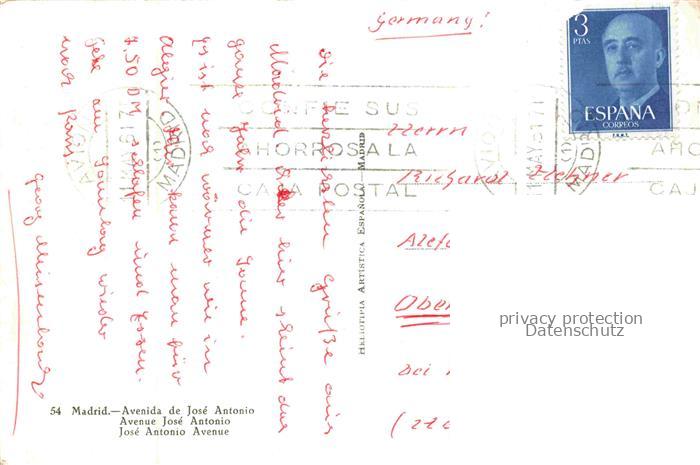 Germany!
3
PTAS
ESPAÑA
CORREOS
F.N.M.T.
CONFIE SUS
AHORROS A LA
CAJA POSTAL
MADRID
AVION
AHO
CAJ
Die herzlichsten Grüße aus
Madrid hier scheint das
ganze Jahr die Sonne.
Es ist noch wärmer wie in
Algier kann man für
7.50 DM schlafen und Essen.
Gehe am Sonntag wieder
nach
Georg
HELIOTIPIA ARTISTICA ESPAÑOLA - MADRID
Herrn
Richard
Ober
bei
privacy protection
Datenschutz
54 Madrid.—Avenida de José Antonio
Avenue José Antonio
José Antonio Avenue